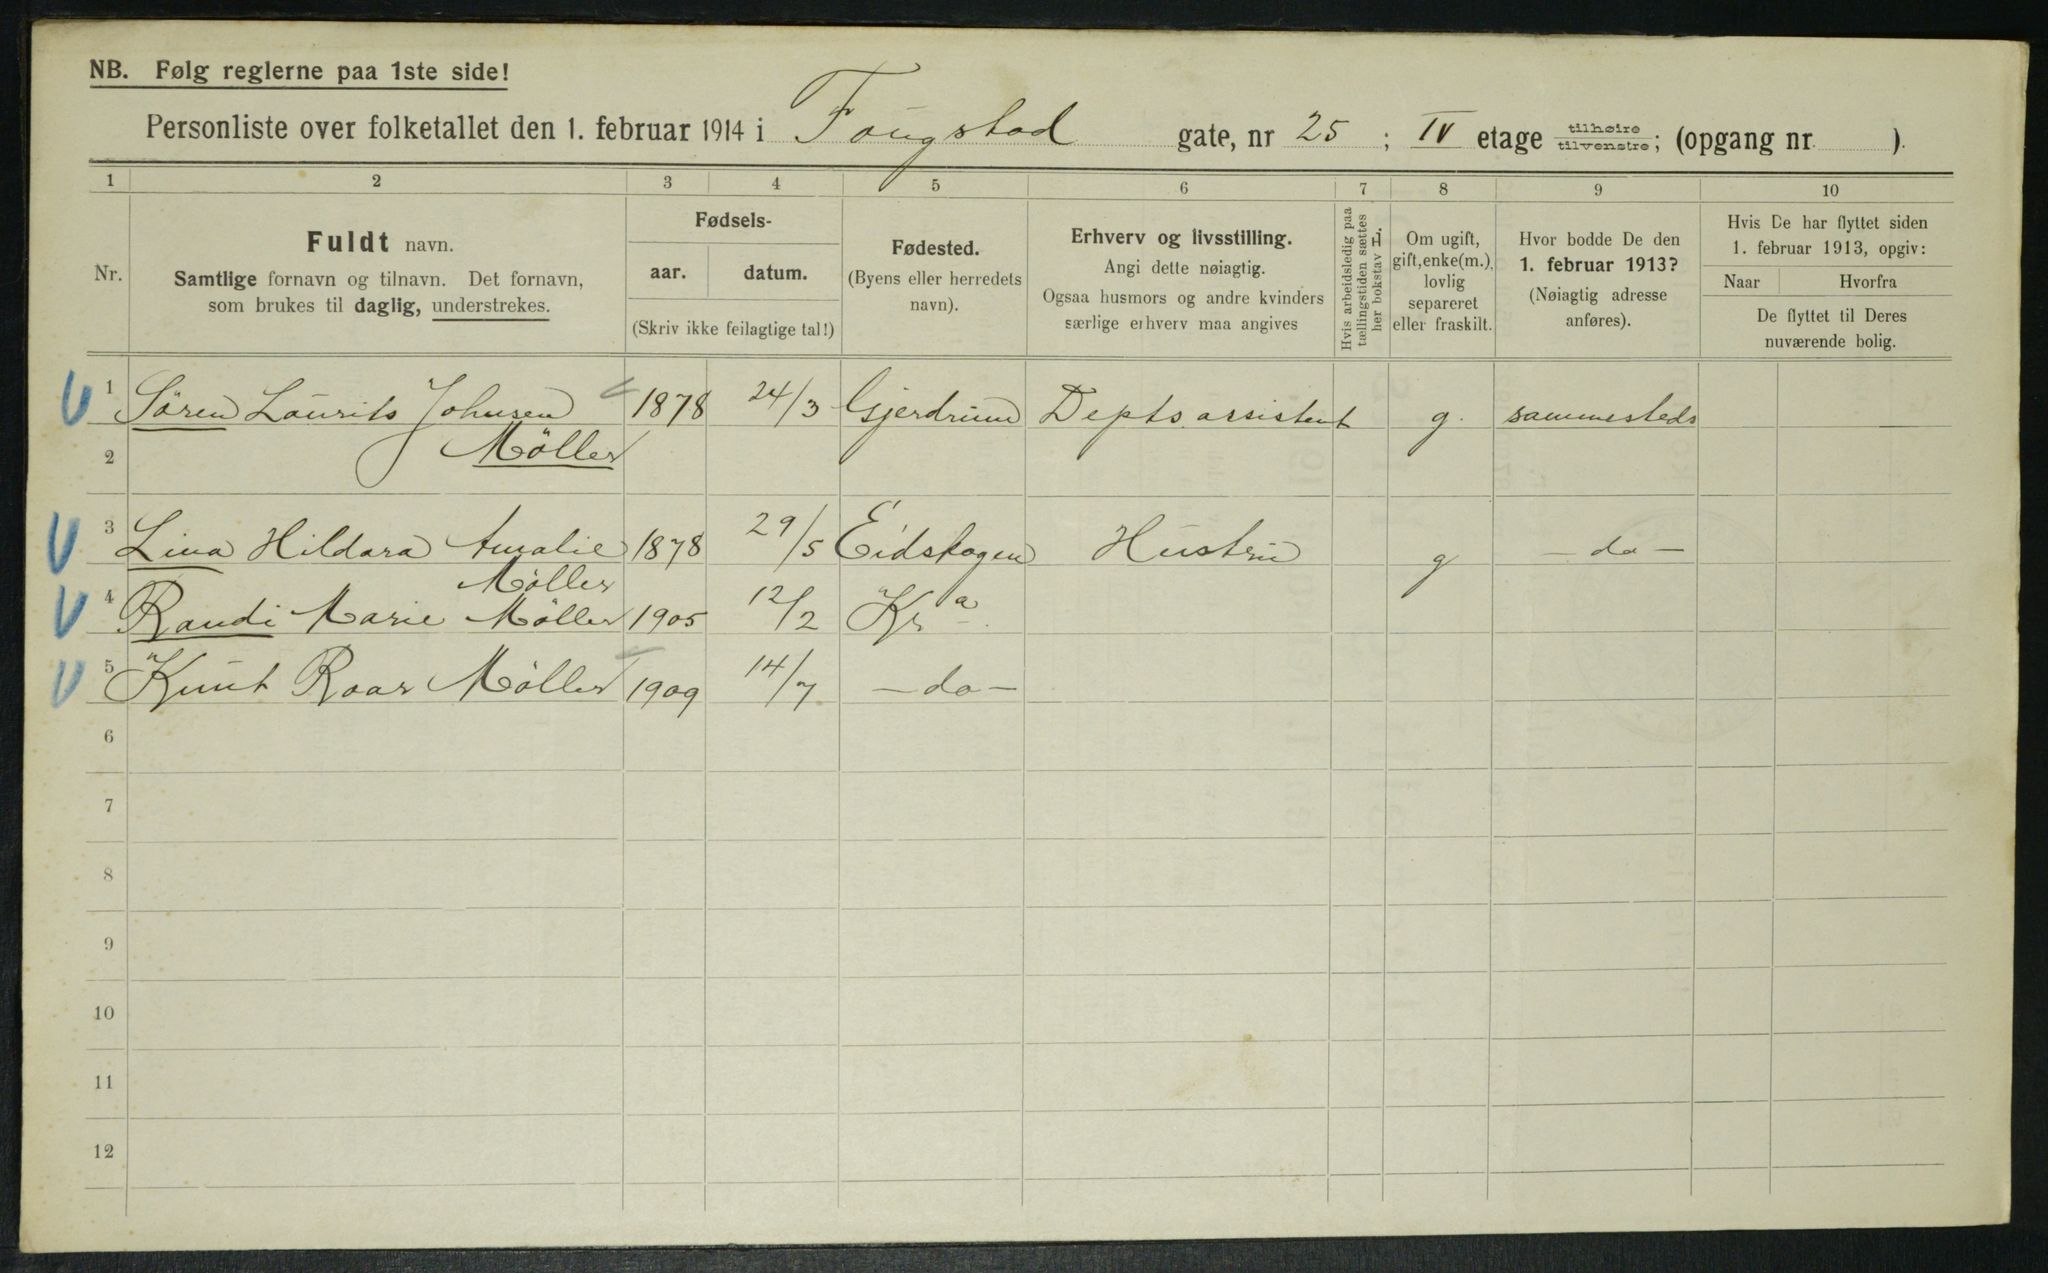 NB. Følg reglerne paa 1ste side!
Personliste over folketallet den 1. februar 1914 i Fougstad gate, nr 25 ; IV etage tilhøire tilvenstre; (opgang nr. ).
1 2 3 4 5 6 7 8 9 10
Nr.
Fuldt navn.
Samtlige fornavn og tilnavn. Det fornavn,
som brukes til daglig, understrekes.
Fødsels-
aar. datum.
(Skriv ikke feilagtige tal!)
Fødested.
(Byens eller herredets
navn).
Erhverv og livsstilling.
Angi dette nøiagtig.
Ogsaa husmors og andre kvinders
særlige erhverv maa angives
Hvis arbeidsledig paa
tællingstiden sættes
her bokstav L.
Om ugift,
gift, enke(m.),
lovlig
separeret
eller fraskilt.
Hvor bodde De den
1. februar 1913?
(Nøiagtig adresse
anføres).
Hvis De har flyttet siden
1. februar 1913, opgiv:
Naar Hvorfra
De flyttet til Deres
nuværende bolig.
1 Sören Laurits Johnsen 1878 24/3 Gjerdrum Depts.assistent g. sammesteds
2 Möller
3 Lina Hildara Amalie 1878 29/5 Eidskogen Hustru g — do —
Möller
4 Randi Marie Möller 1905 12/2 Kra.
5 Knut Roar Möller 1909 14/7 — do —
6
7
8
9
10
11
12